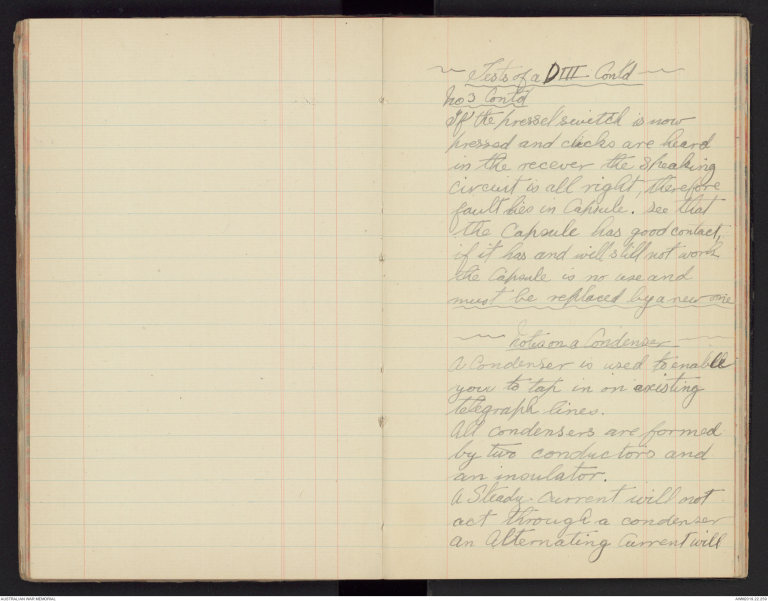 Tests of a DIII Contd
No 3 Contd
If the pressel switch is now
pressed and clicks are heard
in the recever the speaking
circuit is all right, therefore
fault lies in Capsule. see that
the Capsule has good contact,
if it has and will still not work
the Capsule is no use and
must be replaced by a new one
Notes on a Condenser
A Condenser is used to enable
you to tap in on existing
telegraph lines.
All condensers are formed
by two conductors and
an insulator.
A Steady current will not
act through a condenser
an Alternating Current will
AUSTRALIAN WAR MEMORIAL